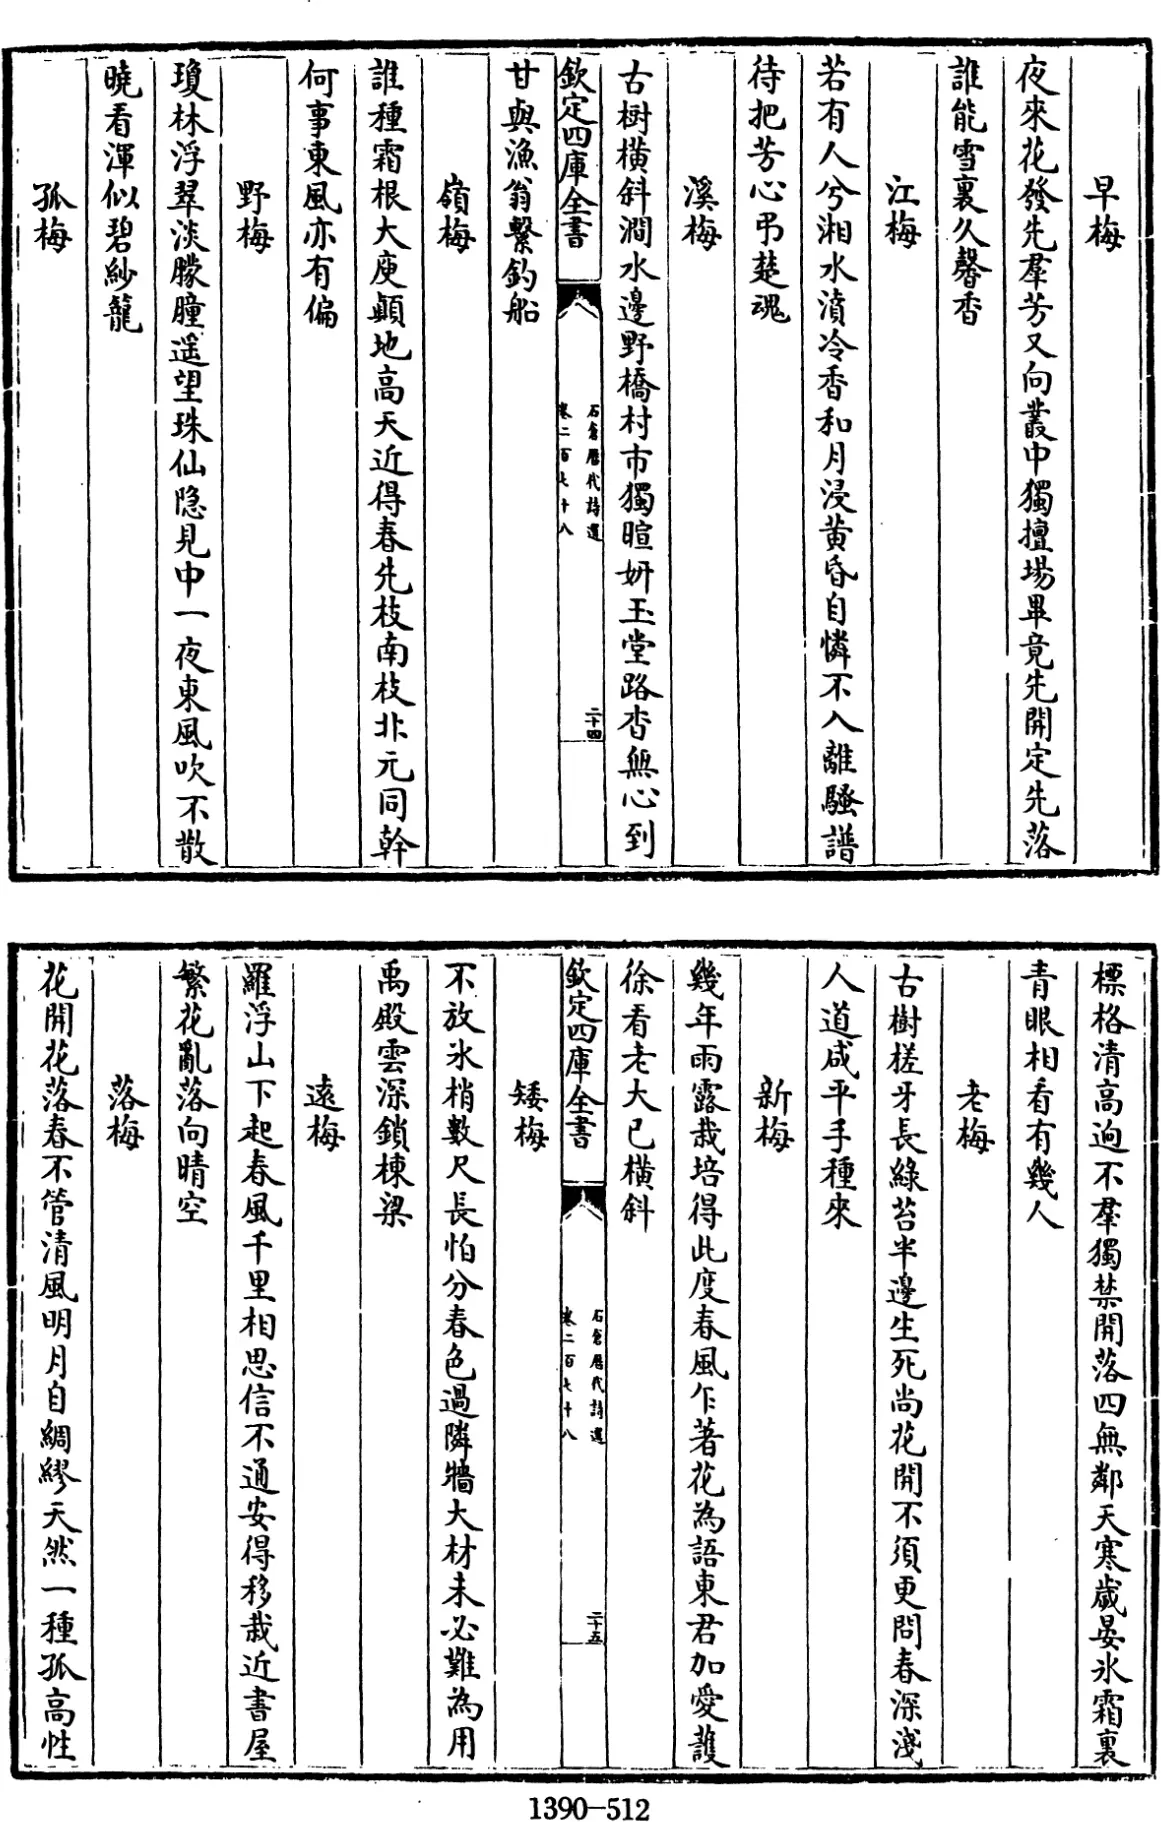 早梅
夜來花發先羣芳又向叢中獨擅場畢竟先開定先落
誰能雪裏久馨香
江梅
若有人兮湘水濆冷香和月浸黄昏自憐不入離騷譜
待把芳心弔楚魂
溪梅
古樹橫斜澗水邊野橋村市獨暄妍玉堂路杳無心到
欽定四庫全書
石倉歷代詩選
卷二百七十八
二十四
甘與漁翁繫釣船
嶺梅
誰種霜根大庾顛地高天近得春先枝南枝北元同幹
何事東風亦有偏
野梅
瓊林浮翠淡朦朣遥望珠仙隐見中一夜東風吹不散
曉看渾似碧紗籠
孤梅
標格清高逈不羣獨禁開落四無鄰天寒歲晏氷霜裏
青眼相看有幾人
老梅
古樹槎牙長綠苔半邊生死尚花開不須更問春深淺
人道咸平手種來
新梅
幾年雨露栽培得此度春風乍著花為語東君加愛護
徐看老大已橫斜
欽定四庫全書
石倉歷代詩選
卷二百七十八
二十五
矮梅
不放氷梢數尺長怕分春色過隣牆大材未必難為用
禹殿雲深鎖棟梁
遠梅
羅浮山下起春風千里相思信不通安得移栽近書屋
繁花亂落向晴空
落梅
花開花落春不管清風明月自綢繆天然一種孤高性
1390-512